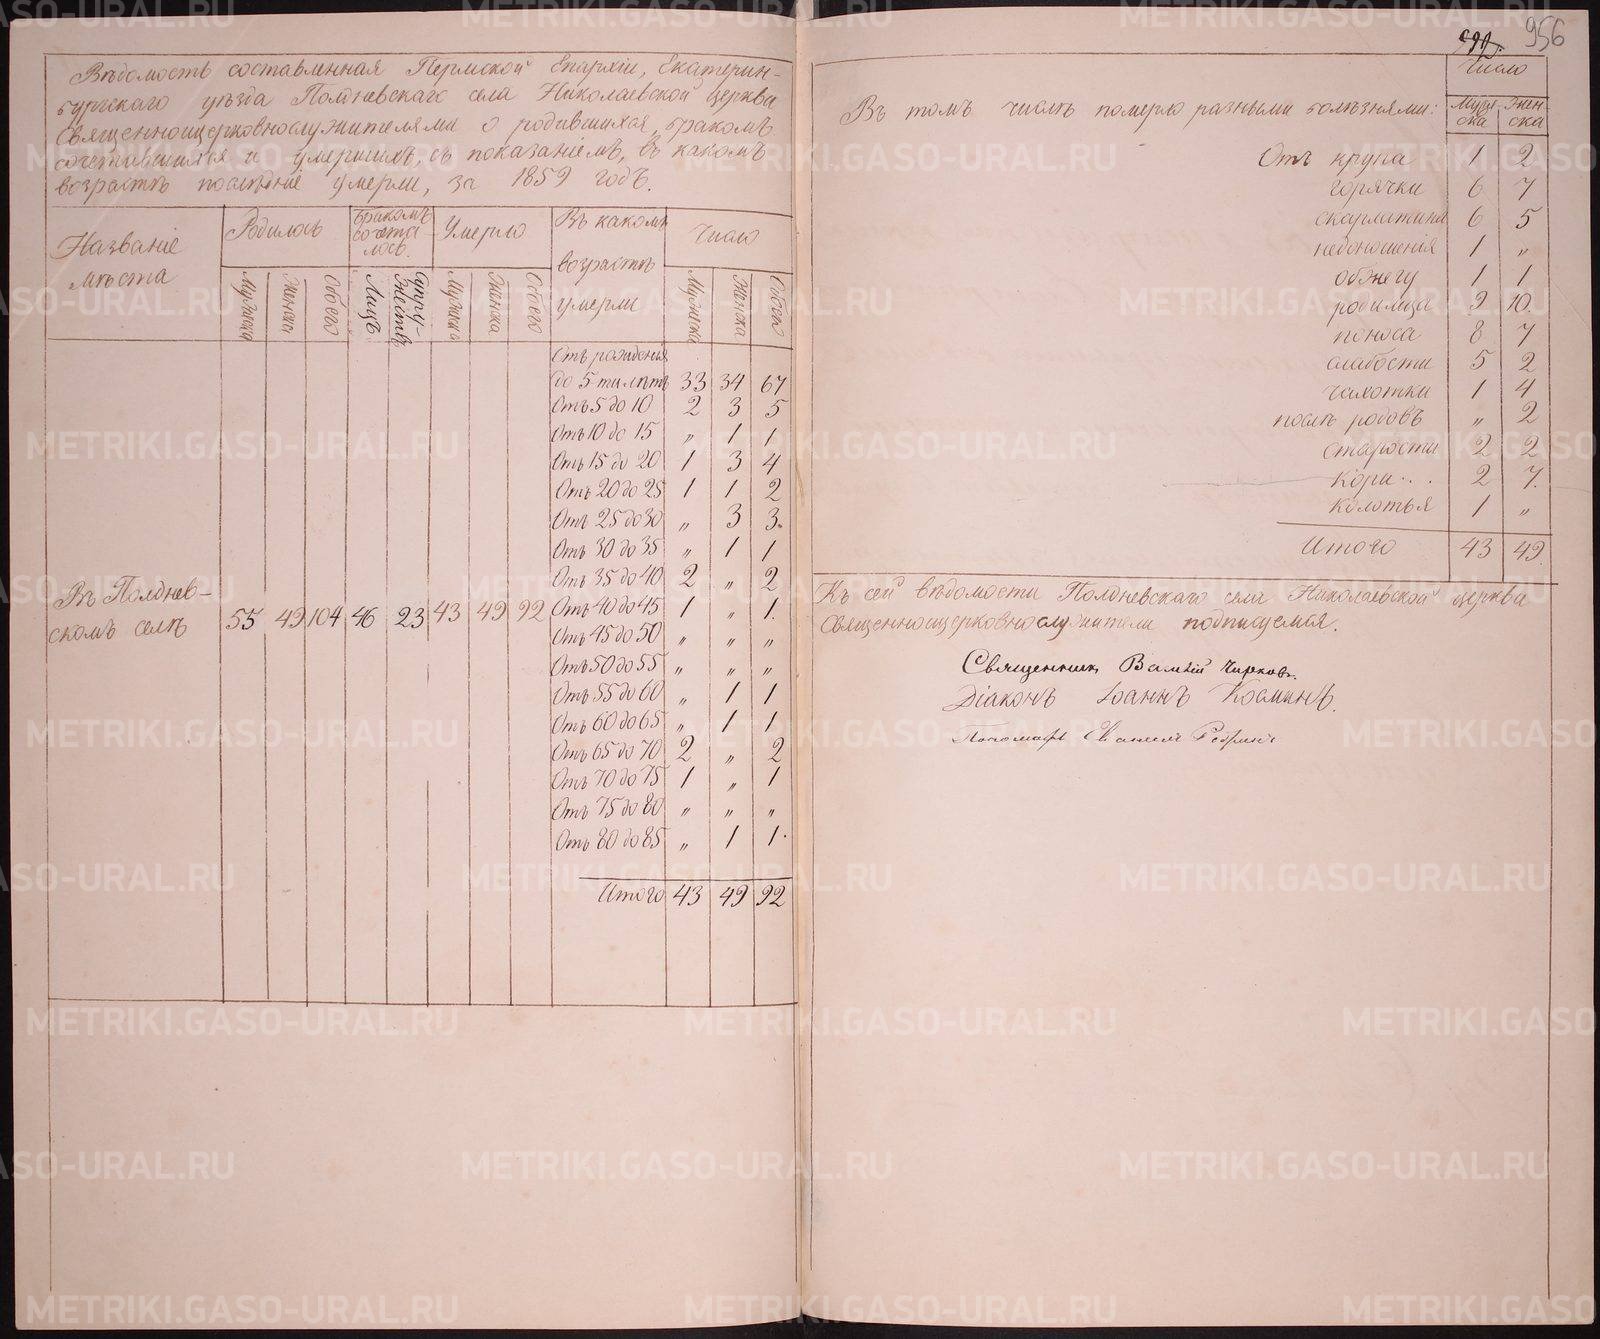 Вѣдомость составленная Пермской Епархіи, Екатерин-
бургскаго уѣзда Полдневскаго села Николаевской церкви
Священноицерковнослужителями о родившихся, бракомъ
сочетавшихся и умершихъ, съ показаніемъ, въ какомъ
возрастѣ послѣдніе умерли, за 1859 годъ.
Названіе мѣста
Родилось
Бракомъ сочета лось.
Умерло
Въ какомъ возрастѣ умерли
Число
Мужска Женска Обоего Лицъ Супру-жествъ Мужска Женска Обоего Мужска Женска Обоего
Отъ рожденія
до 5 ти лѣтъ 33 34 67
Отъ 5 до 10 2 3 5
Отъ 10 до 15 „ 1 1
Отъ 15 до 20 1 3 4
Отъ 20 до 25 1 1 2
Отъ 25 до 30 „ 3 3.
Отъ 30 до 35 „ 1 1
Отъ 35 до 40 2 „ 2
Въ Полднев-
скомъ селѣ 55 49 104 46 23 43 49 92
Отъ 40 до 45 1 „ 1.
Отъ 45 до 50 „ „ „
Отъ 50 до 55 „ „ „
Отъ 55 до 60 „ 1 1
Отъ 60 до 65 „ 1 1
Отъ 65 до 70 2 „ 2
Отъ 70 до 75 1 „ 1
Отъ 75 до 80 „ „ „
Отъ 80 до 85 „ 1 1.
Итого 43 49 92
956
Число
Въ томъ числѣ померло разными болѣзнями:
Мужска Жен-ска
Отъ крупа 1 2
горячки 6 7
скарлатины 6 5
недоношенія 1 „
обжегу 1 1
родимца 9 10.
поноса 8 7
слабости 5 2
чахотки 1 4
послѣ родовъ „ 2
старости 2 2
Кори... 2 7.
Колотья 1 „
Итого 43 49.
Къ сей вѣдомости Полдневскаго села Николаевской церкви
Священноицерковнослужители подписуемся.
Священникъ Чирковъ.
Діаконъ Іоаннъ Косминъ.
Пономарь
METRIKI.GASO-URAL.RU